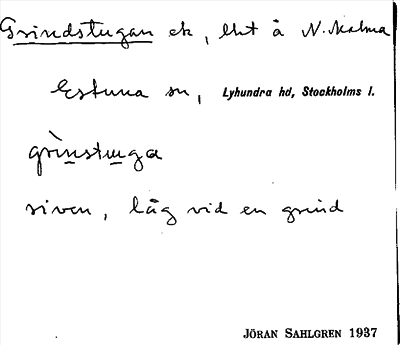 Grindstugan ek, lht å N. Malma
Estuna sn, Lyhundra hd, Stockholms l.
grìnstuga
riven, låg vid en grind
JÖRAN SAHLGREN 1937